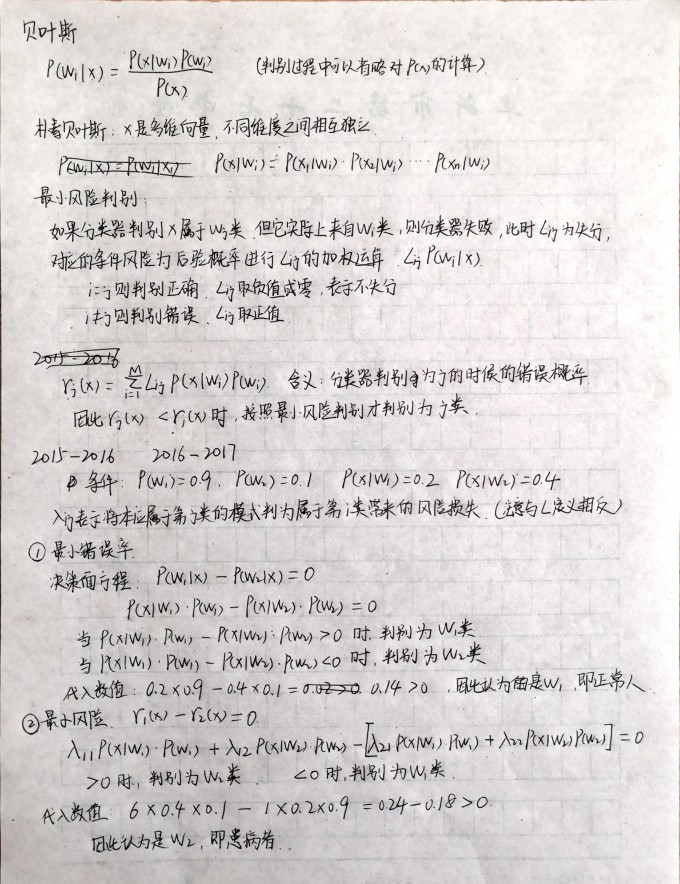 贝叶斯
P(Wi|x) = P(x|Wi)P(Wi) / P(x) (判别过程中可以省略对P(x)的计算)
朴素贝叶斯: x是多维向量, 不同维度之间相互独立
P(Wi|x) = P(Wi|x1) P(x|Wi) = P(x1|Wi)·P(x2|Wi)····P(xn|Wi)
最小风险判别:
如果分类器判别x属于Wj类, 但它实际上来自Wi类, 则分类器失败, 此时Lij为失分,
对应的条件风险为后验概率进行Lij的加权运算 Lij P(Wi|x)
i=j则判别正确, Lij取负值或零, 表示不失分
i≠j则判别错误, Lij取正值
2015-2016
rj(x) = M∑i=1 Lij P(x|Wi)P(Wi) 含义: 分类器判别为j的时候的错误概率
因此rj(x) < ri(x)时, 按照最小风险判别才判别为j类.
2015-2016 2016-2017
条件: P(W1)=0.9, P(W2)=0.1 P(x|W1)=0.2 P(x|W2)=0.4
λij表示将本应属于第j类的模式判为属于第i类带来的风险损失. (注意与L定义相反)
① 最小错误率
决策面方程: P(W1|x) - P(W2|x) = 0
P(x|W1)·P(W1) - P(x|W2)·P(W2) = 0
当 P(x|W1)·P(W1) - P(x|W2)·P(W2) > 0 时, 判别为W1类
当 P(x|W1)·P(W1) - P(x|W2)·P(W2) < 0 时, 判别为W2类
代入数值: 0.2×0.9 - 0.4×0.1 = 0.02>0 0.14>0, 因此认为是W1, 即正常人
② 最小风险 r1(x) - r2(x) = 0
λ11 P(x|W1)·P(W1) + λ12 P(x|W2)·P(W2) - [λ21 P(x|W1)·P(W1) + λ22 P(x|W2)P(W2)] = 0
>0时, 判别为W2类. <0时, 判别为W1类.
代入数值: 6×0.4×0.1 - 1×0.2×0.9 = 0.24-0.18>0
因此认为是W2, 即患病者..